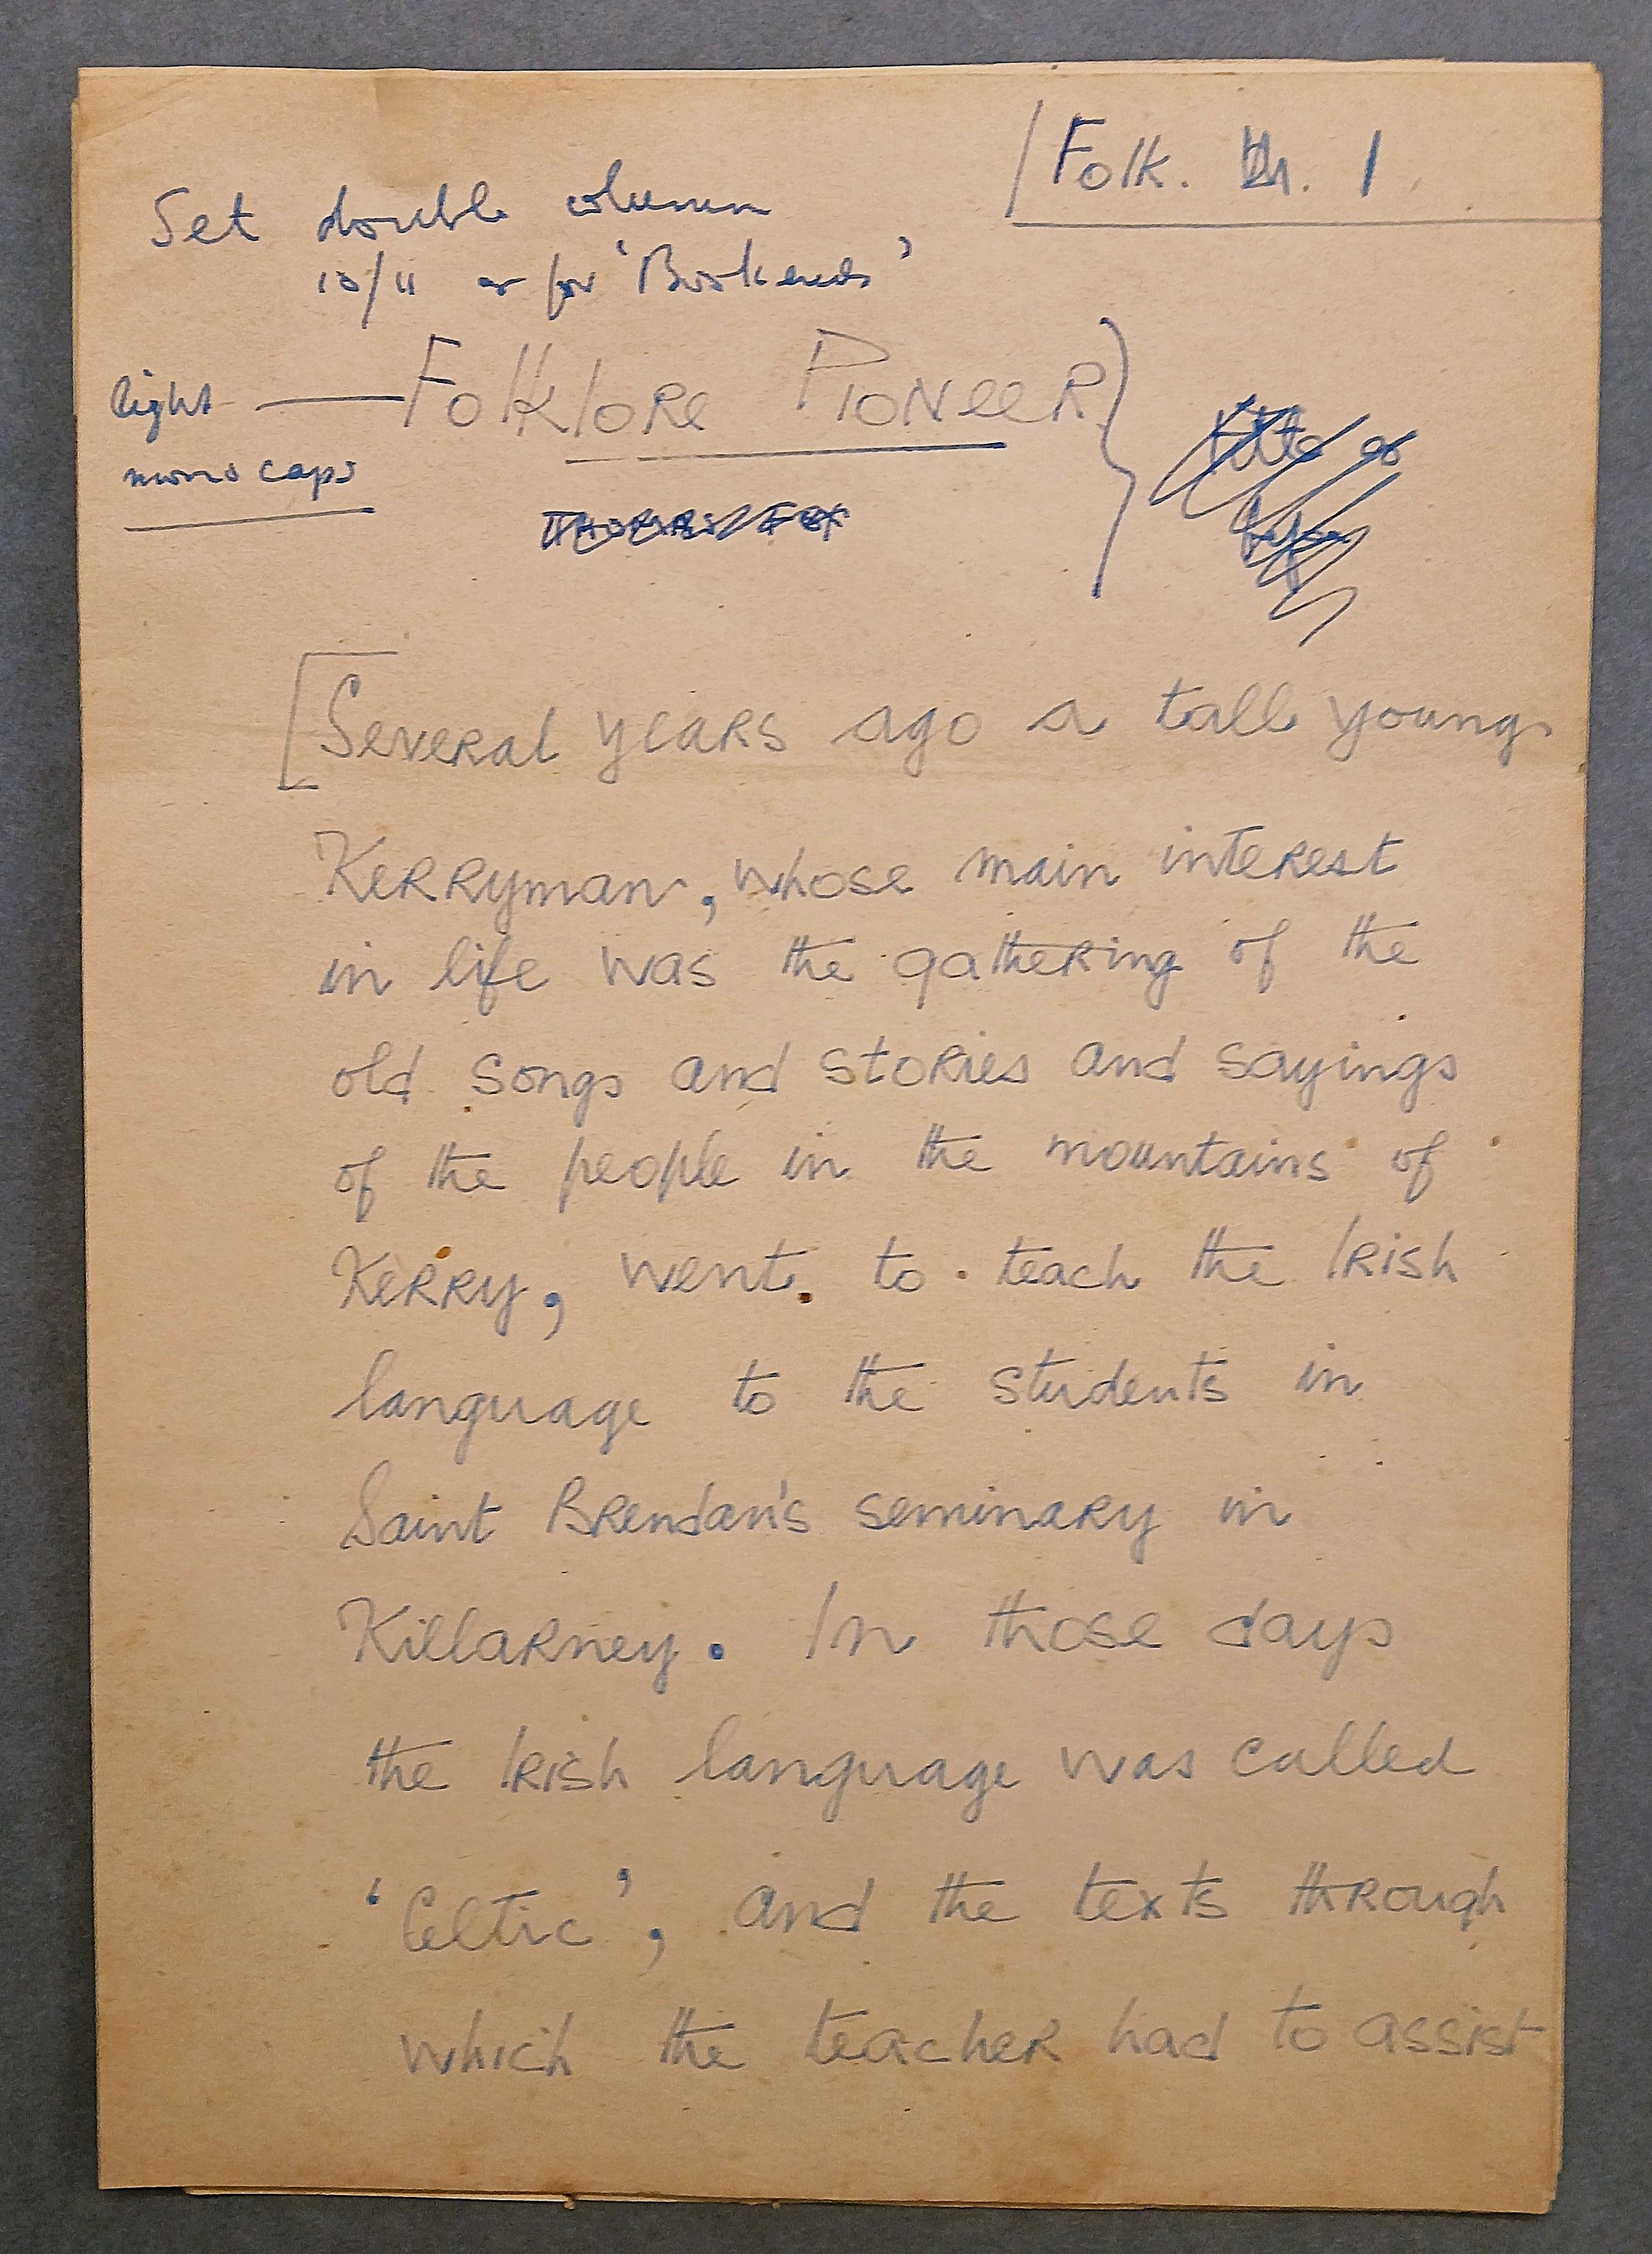 Folk. 1
Set double column
10/11 as for 'Bookends'
light
mono caps
Folklore Pioneer
Several years ago a tall young
Kerryman, whose main interest
in life was the gathering of the
old songs and stories and sayings
of the people in the mountains of
Kerry, went to teach the Irish
language to the students in
Saint Brendan's seminary in
Killarney. In those days
the Irish language was called
'Celtic', and the texts through
which the teacher had to assist